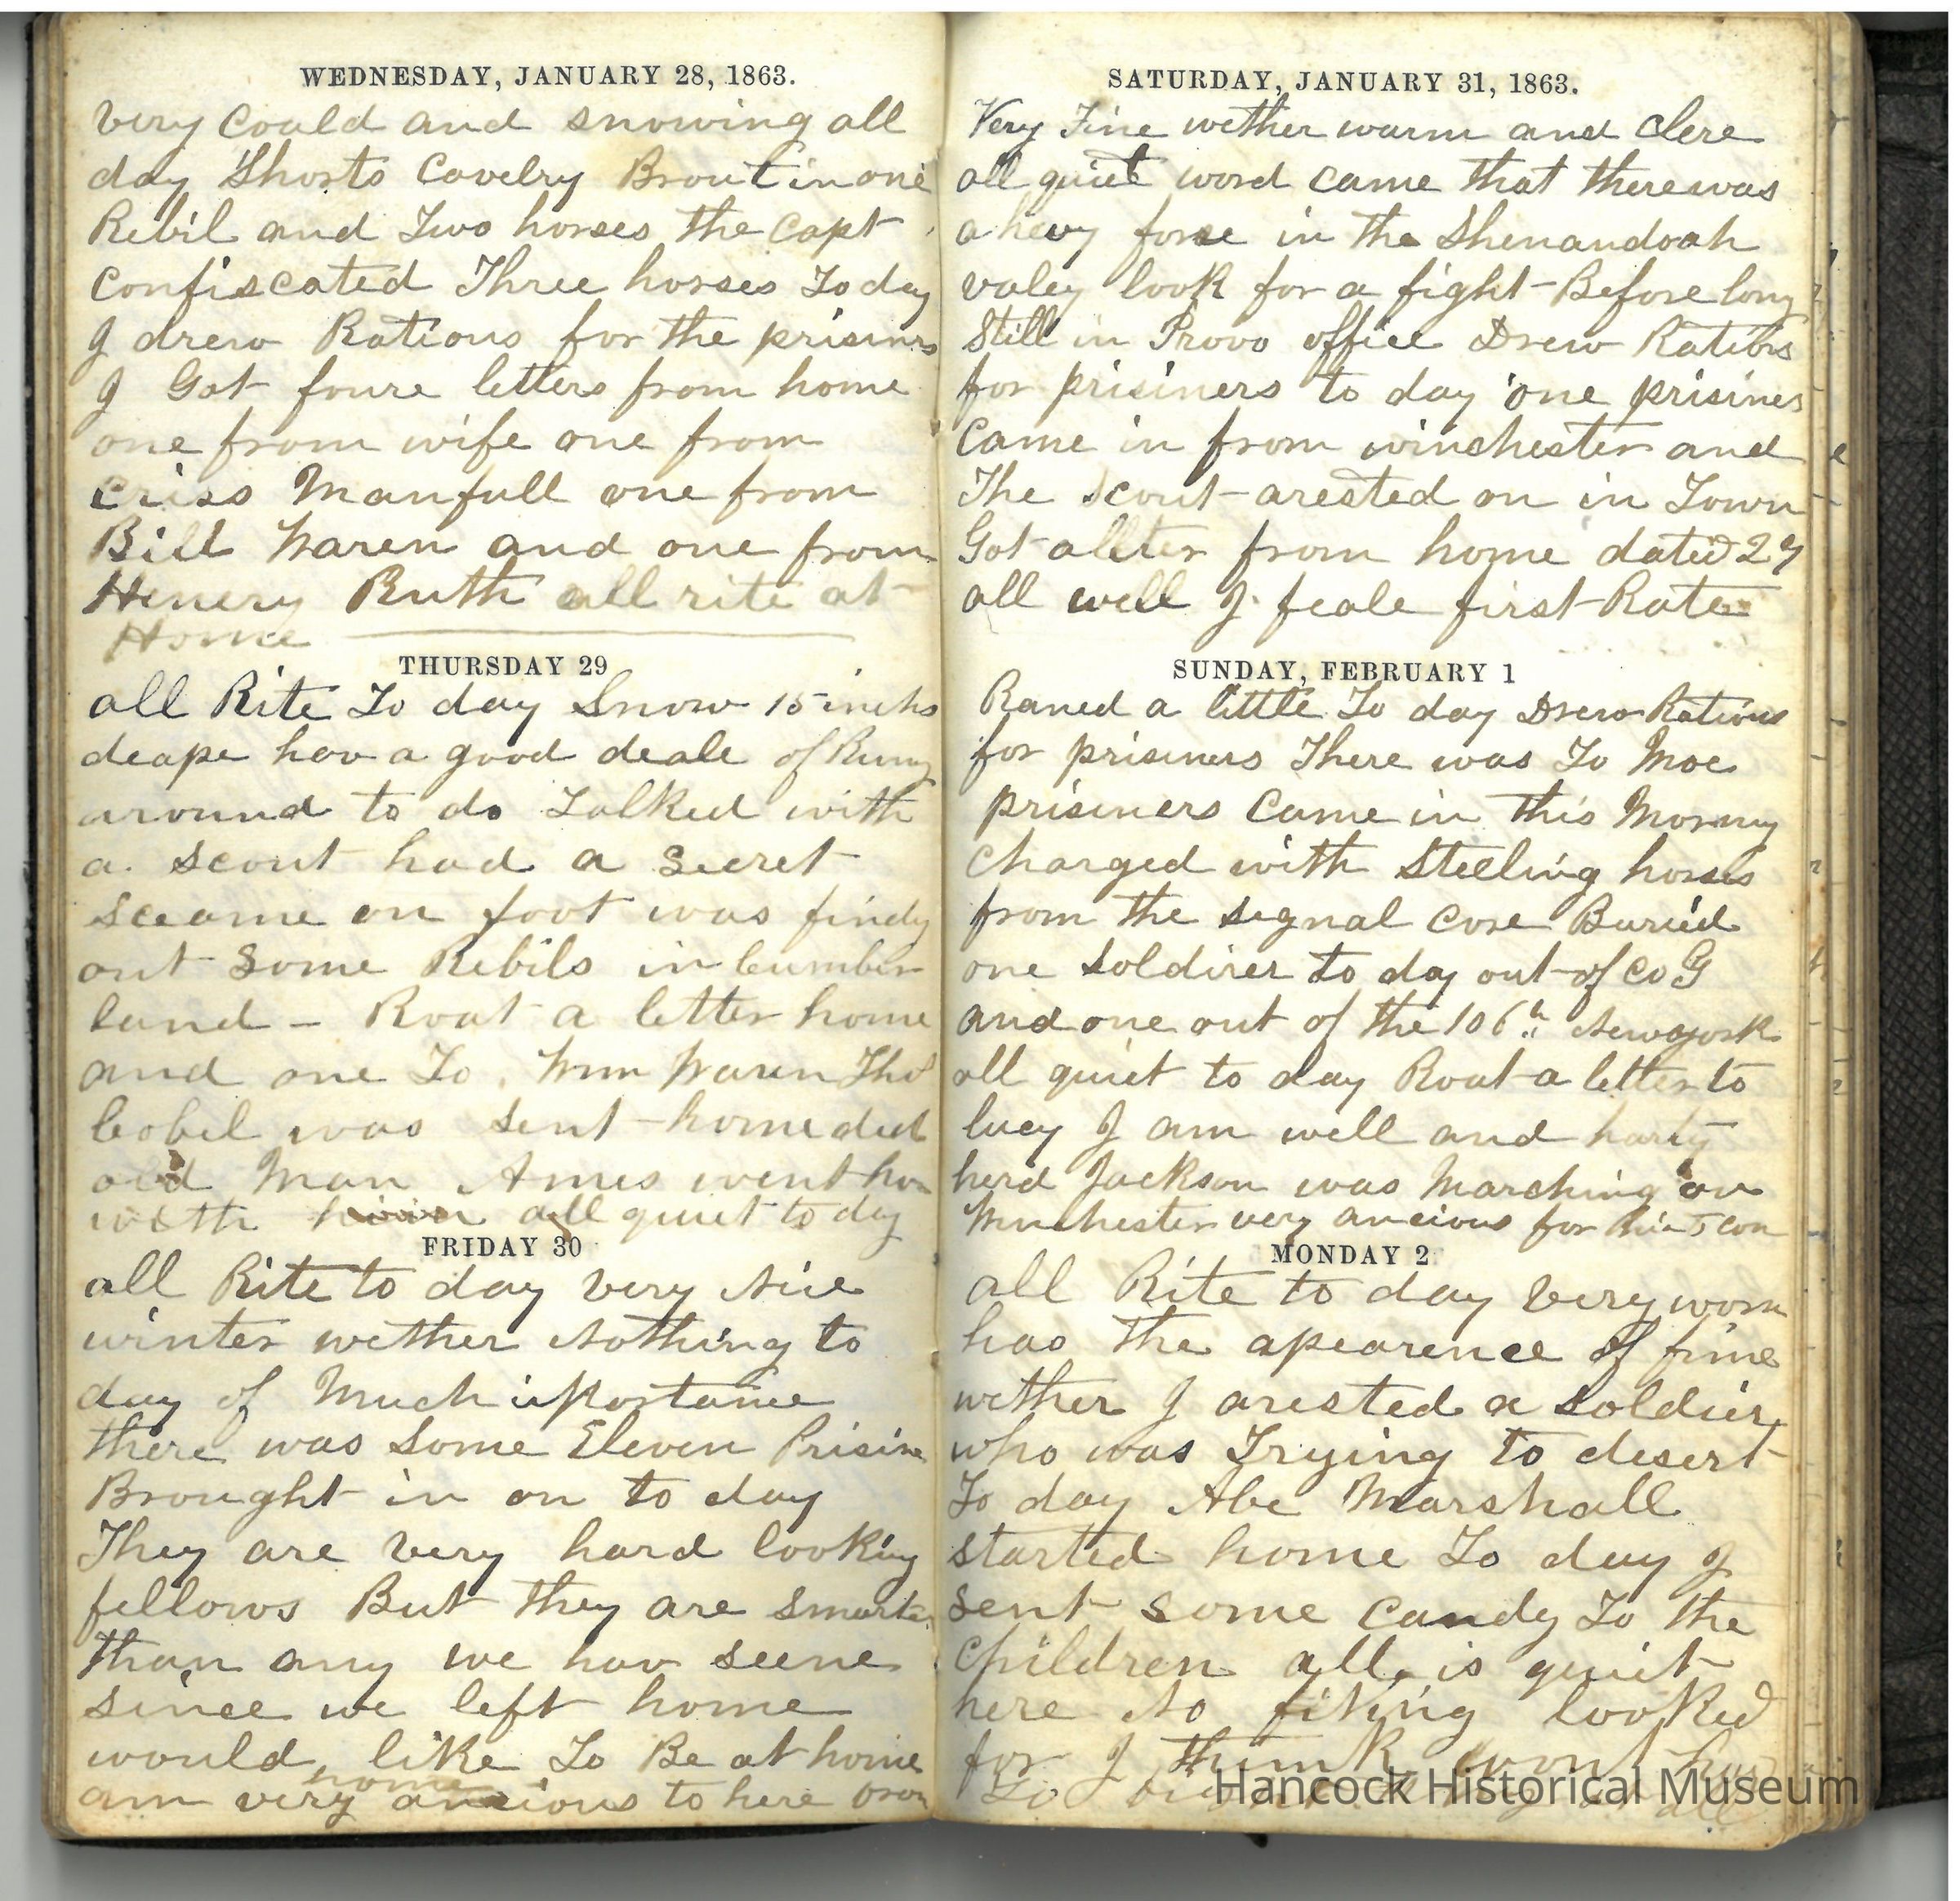 WEDNESDAY, JANUARY 28, 1863.
very Could and snowing all
day Shorts Cavelry Brout in one
Rebil and Two horses the Capt
Confiscated Three horses To day
I drew Rations for the prisinrs
I Got foure letters from home
one from wife one from
Criss Manfull one from
Bill Waren and one from
Henery Ruth all rite at
Home
THURSDAY 29
all Rite To day Snow 15 inchs
deape hav a good deale of Runing
around to do Talked with
a scout had a Secret
sceame on foot was findg
out Some Rebils in Cumber
land - Rout a letter home
and one To Wm Waren Tho
Cobel was sent home
old Man Ames went hom
with all quiet to day
FRIDAY 30
all Rite to day very Nice
winter wether Nothing to
day of Much
there was Some Eleven Prisin
Brought in on to day
They are very hard looking
fellows But they are smarter
than any we hav seene
since we left home
would like To Be at home
am very ancious to here from
home
SATURDAY, JANUARY 31, 1863.
Very Fine wether warm and Clere
all quiet word came that there was
a hevy forse in the Shenandoah
valey look for a fight Before long
Still in Provo office Drew Rations
for prisiners to day one prisiner
Came in from winchester and
The scout arested on in Town
Got a letter from home dated 27
all well I feale first Rate
SUNDAY, FEBRUARY 1
Raned a little To day Drew Rations
for prisiners There was To Moe
prisiners Came in this Morning
Charged with Steeling horses
from the signal Core Buried
one Soldirer to day out of Co G
and one out of the 106th Newyork
all quiet to day Rout a letter to
lucy I am well and harty
herd Jackson was Marching on
Winchester very ancious for
MONDAY 2
all Rite to day very worm
has the apearence of fine
wether I arested a soldier
who was Trying to desert
To day Abe Marshall
started home To day I
sent some Candy To the
Children all is quiet
here No fiting looked
for I think wont hav
To
Hancock Historical Museum